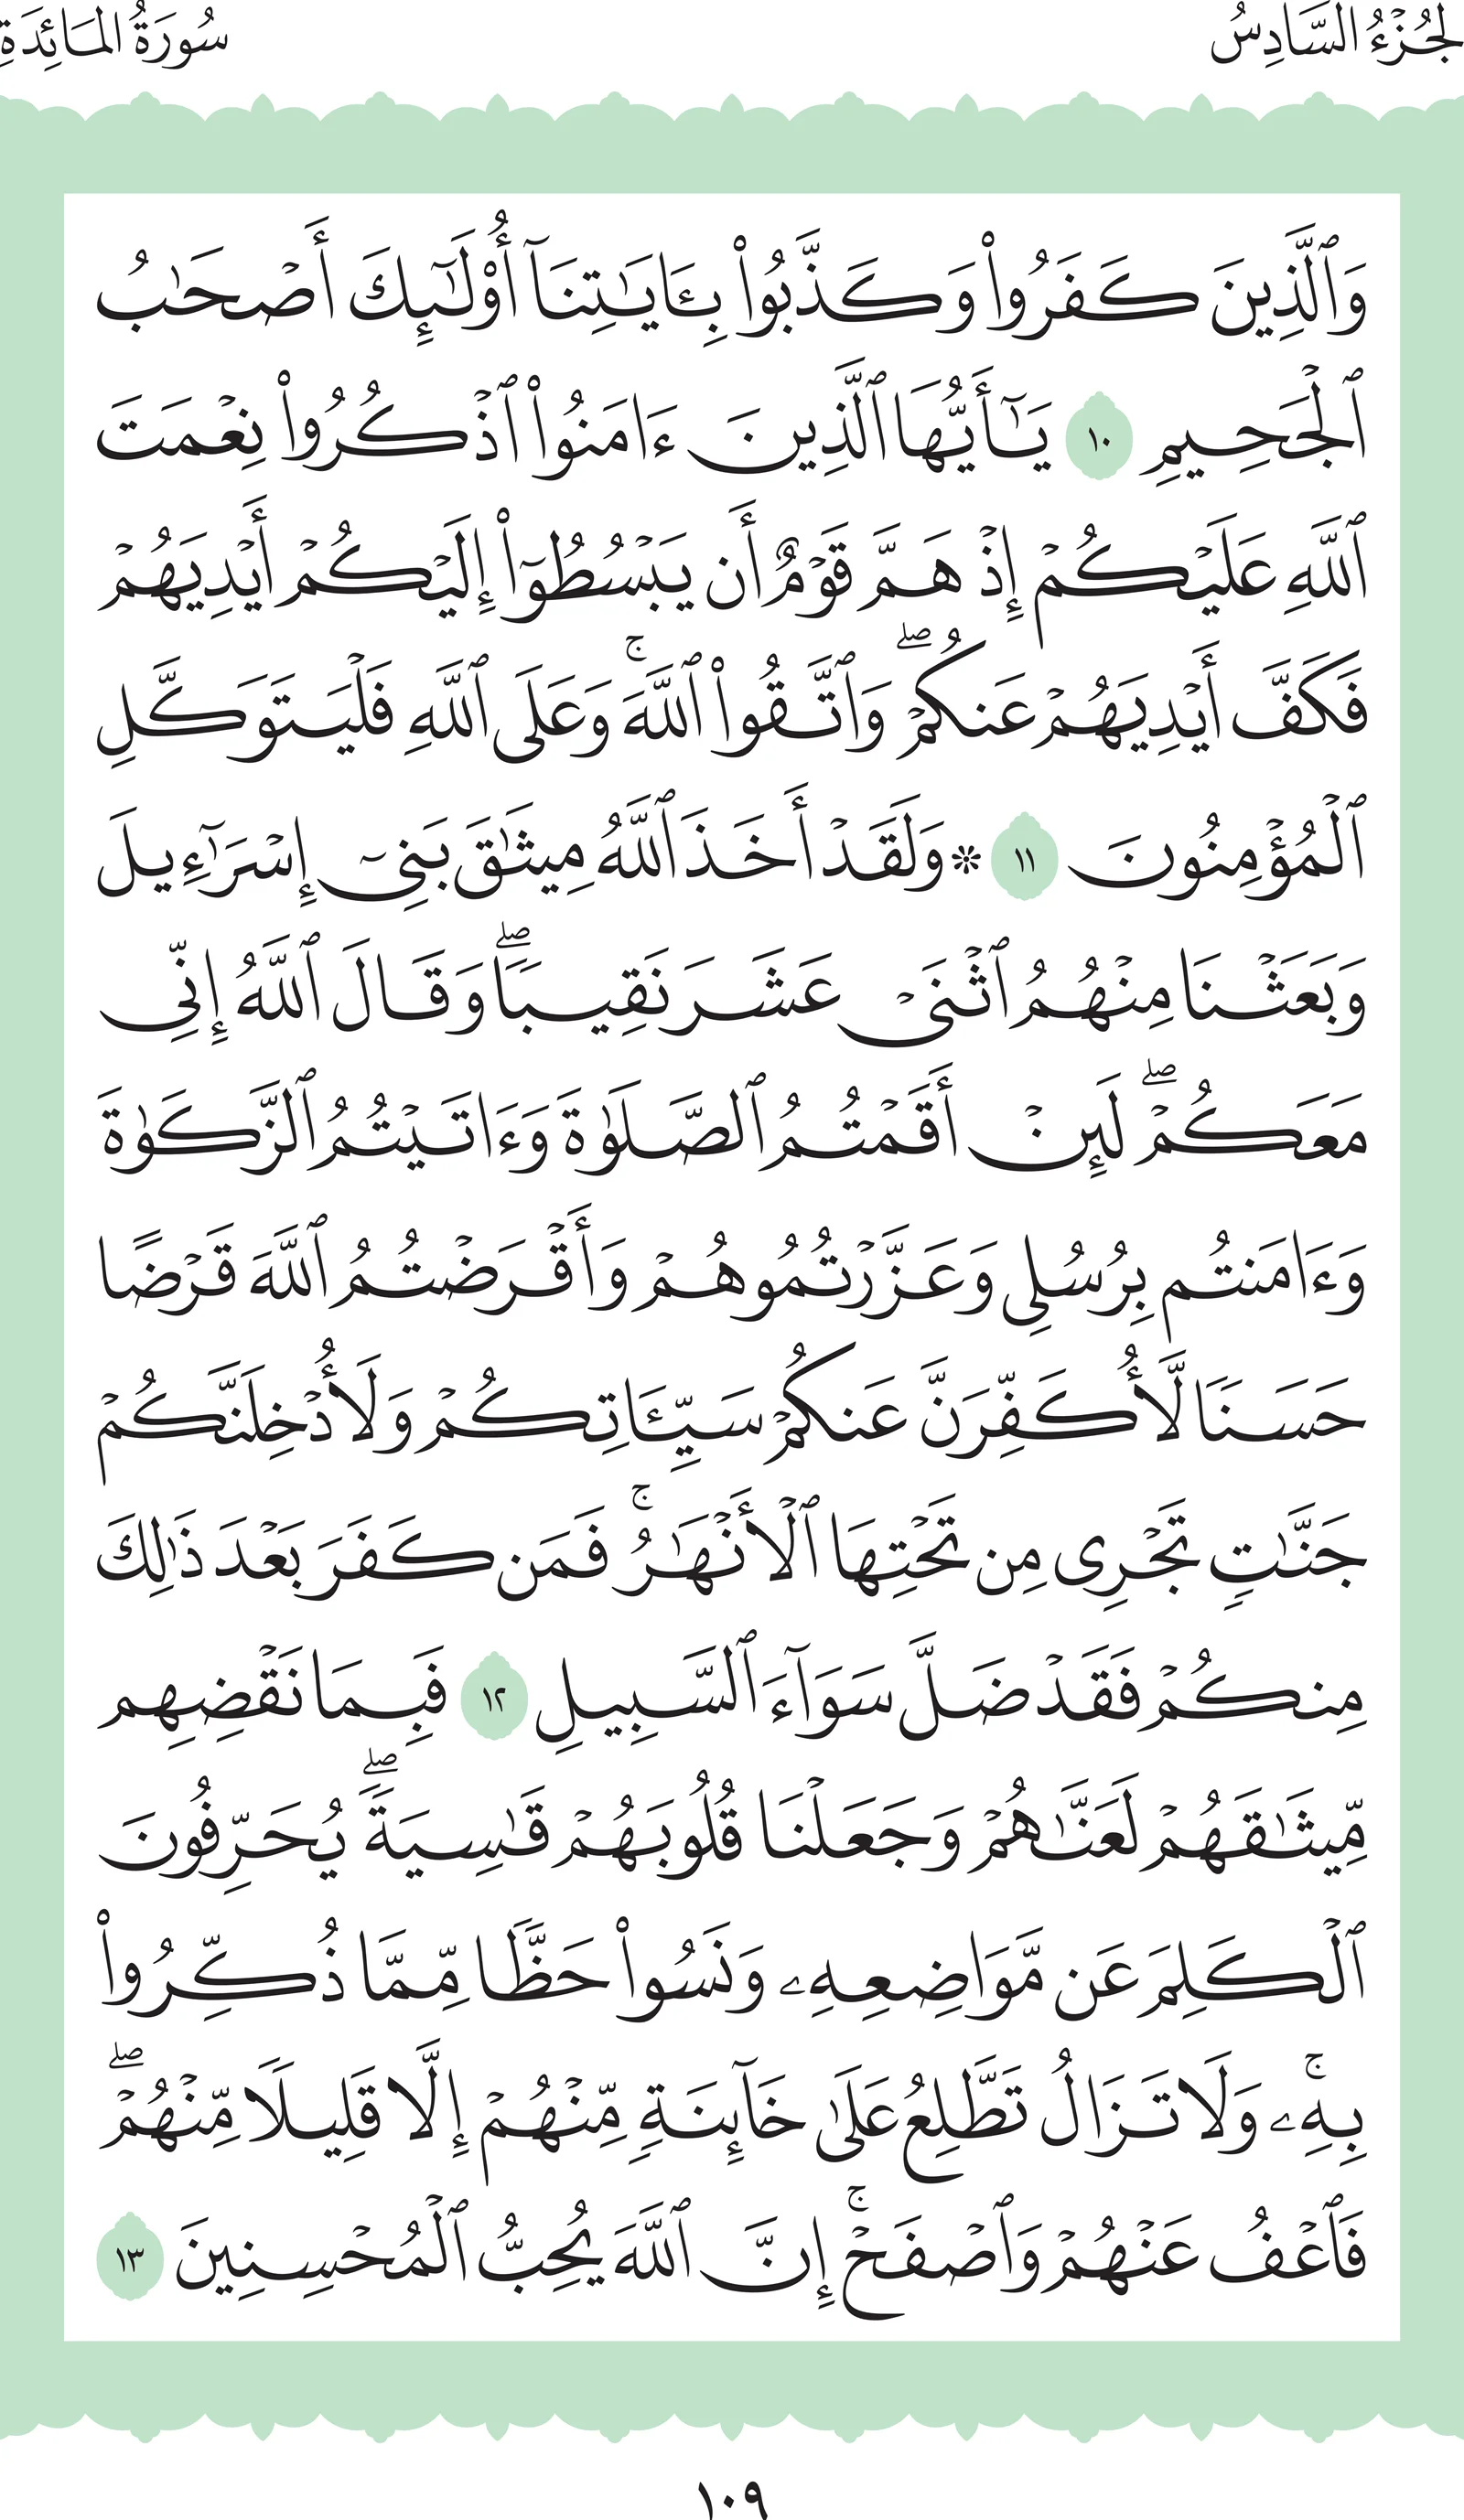 الجُزْءُ السَّادِسُ سُورَةُ المَائِدَةِ
وَٱلَّذِينَ كَفَرُوا۟ وَكَذَّبُوا۟ بِـَٔايَـٰتِنَآ أُو۟لَـٰٓئِكَ أَصْحَـٰبُ
ٱلْجَحِيمِ ١٠ يَـٰٓأَيُّهَا ٱلَّذِينَ ءَامَنُوا۟ ٱذْكُرُوا۟ نِعْمَتَ
ٱللَّهِ عَلَيْكُمْ إِذْ هَمَّ قَوْمٌ أَن يَبْسُطُوٓا۟ إِلَيْكُمْ أَيْدِيَهُمْ
فَكَفَّ أَيْدِيَهُمْ عَنكُمْ ۖ وَٱتَّقُوا۟ ٱللَّهَ ۚ وَعَلَى ٱللَّهِ فَلْيَتَوَكَّلِ
ٱلْمُؤْمِنُونَ ١١ ❇ وَلَقَدْ أَخَذَ ٱللَّهُ مِيثَـٰقَ بَنِىٓ إِسْرَٰٓءِيلَ
وَبَعَثْنَا مِنْهُمُ ٱثْنَىْ عَشَرَ نَقِيبًا ۖ وَقَالَ ٱللَّهُ إِنِّى
مَعَكُمْ ۖ لَئِنْ أَقَمْتُمُ ٱلصَّلَوٰةَ وَءَاتَيْتُمُ ٱلزَّكَوٰةَ
وَءَامَنتُم بِرُسُلِى وَعَزَّرْتُمُوهُمْ وَأَقْرَضْتُمُ ٱللَّهَ قَرْضًا
حَسَنًا لَّأُكَفِّرَنَّ عَنكُمْ سَيِّـَٔاتِكُمْ وَلَأُدْخِلَنَّكُمْ
جَنَّـٰتٍ تَجْرِى مِن تَحْتِهَا ٱلْأَنْهَـٰرُ ۚ فَمَن كَفَرَ بَعْدَ ذَٰلِكَ
مِنكُمْ فَقَدْ ضَلَّ سَوَآءَ ٱلسَّبِيلِ ١٢ فَبِمَا نَقْضِهِم
مِّيثَـٰقَهُمْ لَعَنَّـٰهُمْ وَجَعَلْنَا قُلُوبَهُمْ قَـٰسِيَةً ۖ يُحَرِّفُونَ
ٱلْكَلِمَ عَن مَّوَاضِعِهِۦ وَنَسُوا۟ حَظًّا مِّمَّا ذُكِّرُوا۟
بِهِۦ ۚ وَلَا تَزَالُ تَطَّلِعُ عَلَىٰ خَآئِنَةٍ مِّنْهُمْ إِلَّا قَلِيلًا مِّنْهُمْ ۖ
فَٱعْفُ عَنْهُمْ وَٱصْفَحْ ۚ إِنَّ ٱللَّهَ يُحِبُّ ٱلْمُحْسِنِينَ ١٣
١٠٩